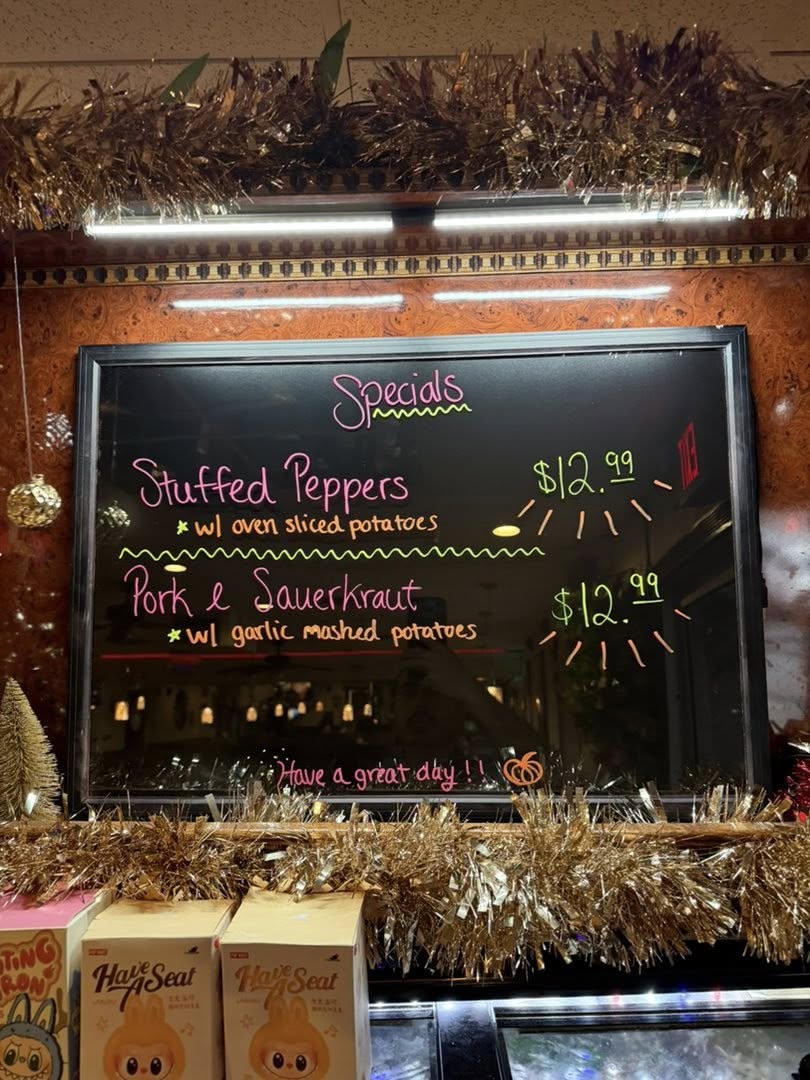 Specials
Stuffed Peppers
$12.99
* w/ oven sliced potatoes
Pork & Sauerkraut
$12.99
* w/ garlic mashed potatoes
Have a great day!!
Have A Seat
Have A Seat